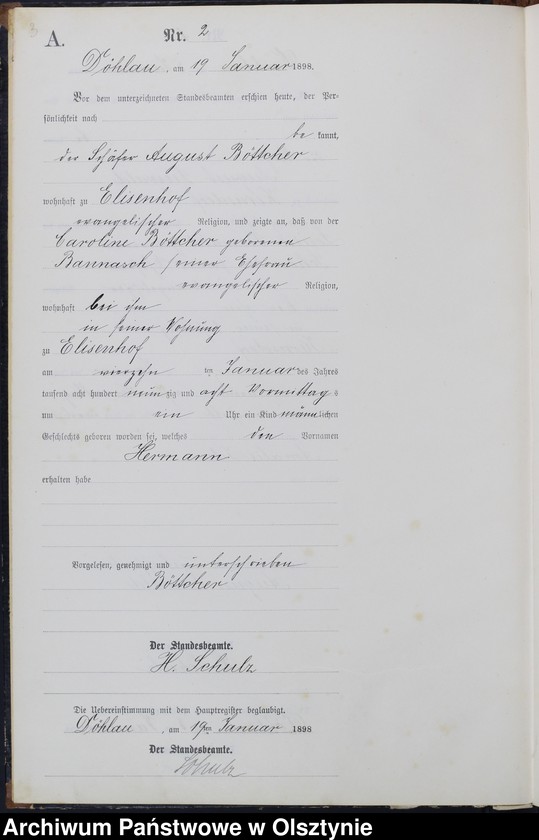 A.
Nr. 2
Döhlau, am 19 Januar 1898.
Vor dem unterzeichneten Standesbeamten erschien heute, der Per-
sönlichkeit nach
be kannt,
der Schäfer August Böttcher
wohnhaft zu Elisenhof
evangelischer Religion, und zeigte an, daß von der
Caroline Böttcher geborenen
Bannasch seiner Ehefrau
evangelischer Religion,
wohnhaft bei ihm
in seiner Wohnung
zu Elisenhof
am vierzehn ten Januar des Jahres
tausend acht hundert neunzig und acht Vormittag s
um ein Uhr ein Kind männlichen
Geschlechts geboren worden sei, welches den Vornamen
Hermann
erhalten habe
Vorgelesen, genehmigt und unterschrieben
Böttcher
Der Standesbeamte.
H. Schulz
Die Uebereinstimmung mit dem Hauptregister beglaubigt.
Döhlau, am 19ten Januar 1898
Der Standesbeamte.
Schulz
Archiwum Państwowe w Olsztynie